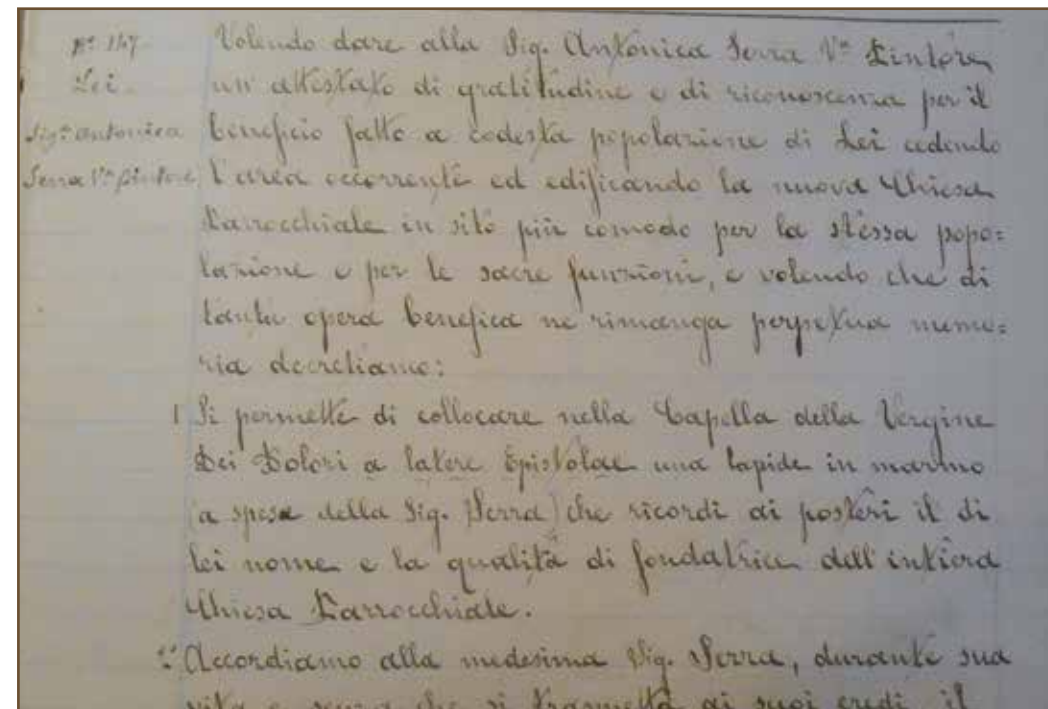 N° 147
Lei
Sig.ra Antonica
Serra V.va Pintore
Volendo dare alla Sig. Antonica Serra V.va Pintore
un' attestato di gratitudine e di riconoscenza per il
beneficio fatto a codesta popolazione di Lei cedendo
l'area occorrente ed edificando la nuova Chiesa
Parrocchiale in sito più comodo per la stessa popo=
lazione e per le sacre funzioni, e volendo che di
tanta opera benefica ne rimanga perpetua memo=
ria decretiamo:
1 Si permette di collocare nella Capella della Vergine
Dei Dolori a latere Epistolae una lapide in marmo
(a spese della Sig. Serra) che ricordi ai posteri il di
lei nome e la qualità di fondatrice dell'intiera
Chiesa Parrocchiale.
2° Accordiamo alla medesima Sig. Serra, durante sua
vita e senza che si trasmetta ai suoi eredi il